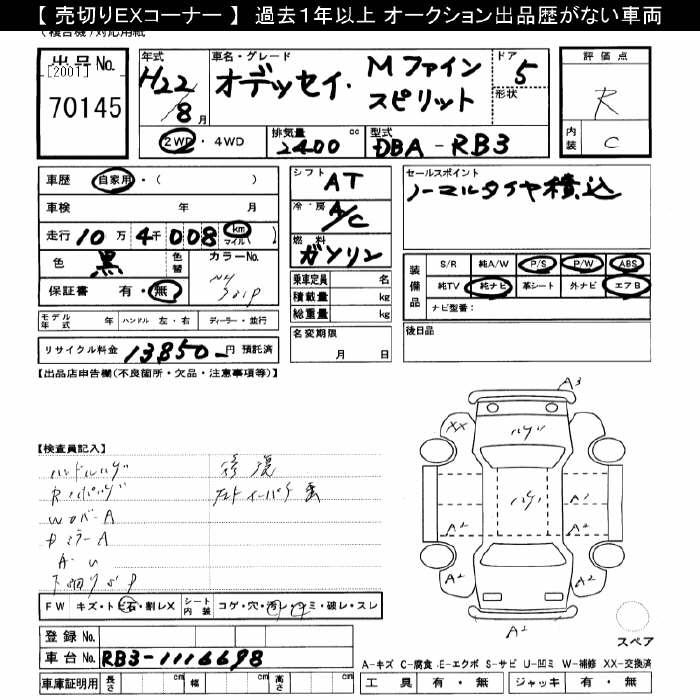 【 売切りEXコーナー 】 過去1年以上 オークション出品歴がない車両
出品No.
[2001]
70145
年式
H22
8月
車名・グレード
オデッセイ・ Mファイン
スピリット
ドア
5
形状
2WD ・ 4WD
排気量
2400 cc
型式
DBA-RB3
評価点
R
内装
C
車歴 自家用・( )
車検 年 月
走行 10万 4千 008 km マイル( )
色 黒 色替 カラーNo.
保証書 有・無
モデル年式 年 ハンドル 左・右 ディーラー・並行
リサイクル料金 13850- 円 預託済
シフト AT
冷・房 A/C
燃料 ガソリン
乗車定員 名
積載量 kg
総重量 kg
名変期限 月 日
セールスポイント
ノーマルタイヤ積込
装備品
S/R 純A/W P/S P/W ABS
純TV 純ナビ 革シート 外ナビ エアB
ナビ型番:
後日品
【出品店申告欄(不良箇所・欠品・注意事項等)】
【検査員記入】
ハンドルハゲ
WカバーA
DミラーA
A-U
修復
FW キズ・トビ石・割レX シート内装 コゲ・穴・汚レ・シミ・破レ・スレ
登録No.
車台No. RB3-1116698
車庫証明用 長さ cm 幅 cm 高さ cm
A3
XX
ハゲ
ハゲ
A1
A2
A2
A2
A2
A2
スペア
A-キズ C-腐食 E-エクボ S-サビ U-凹ミ W-補修 XX-交換済
工具 有・無 ジャッキ 有・無